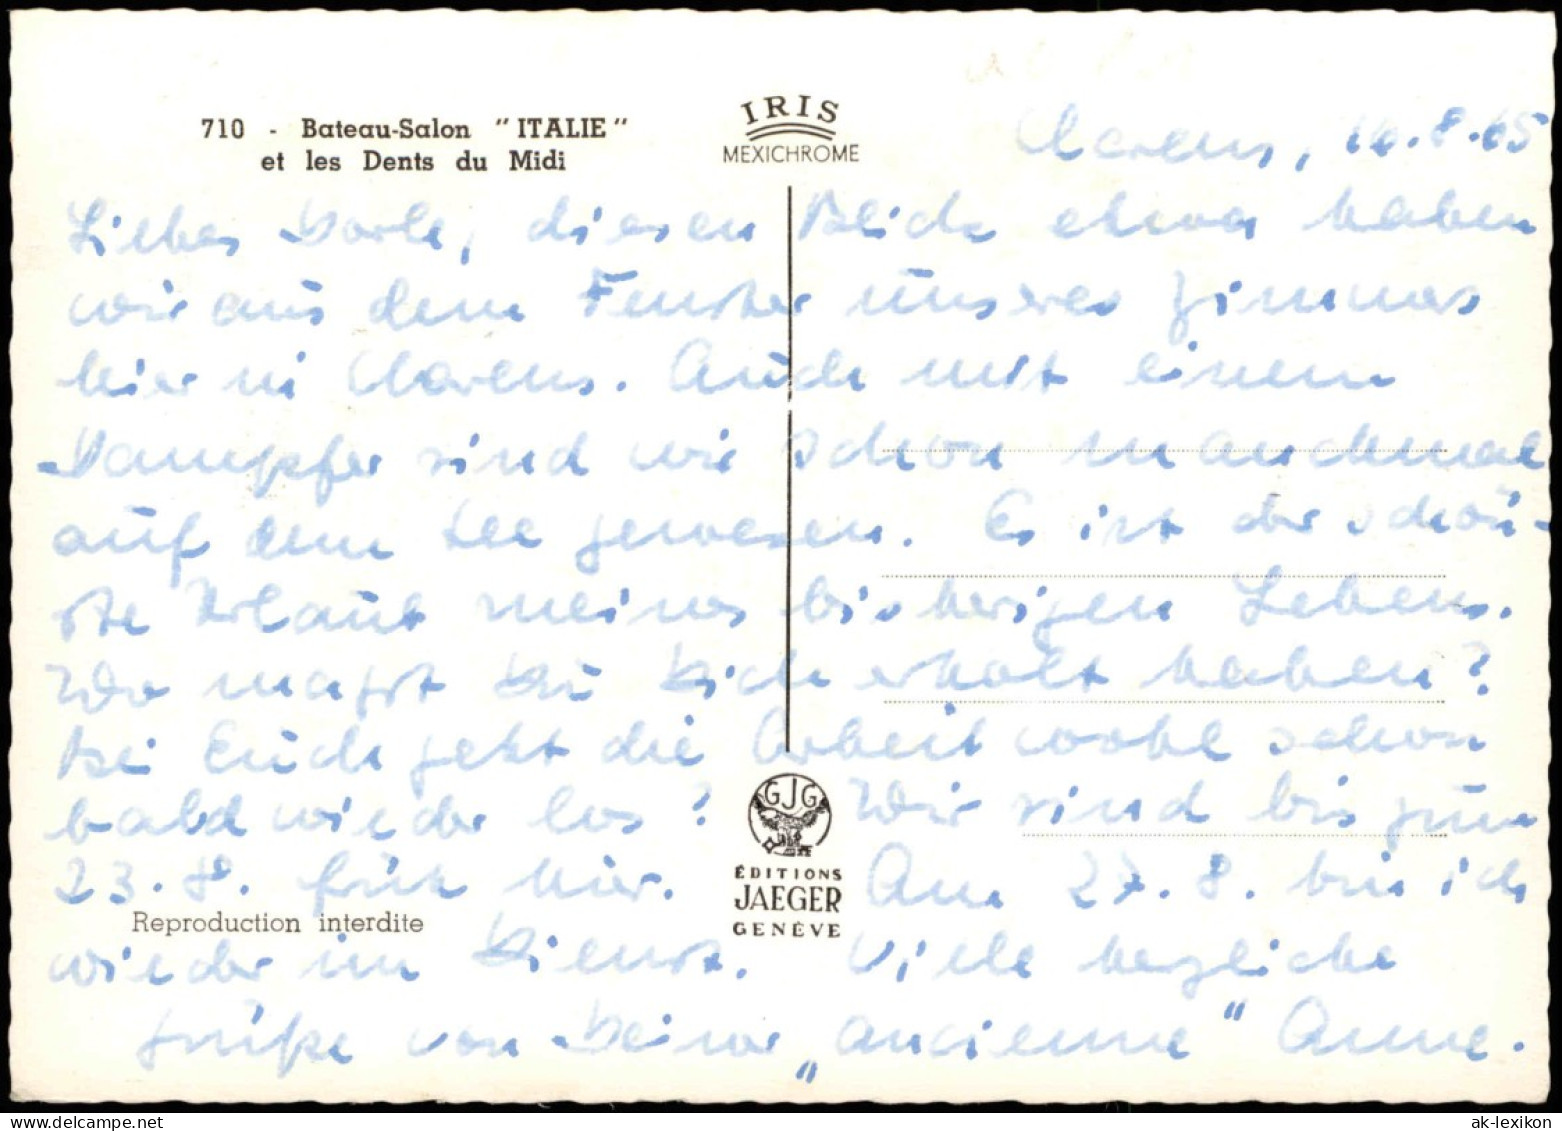 710 - Bateau-Salon "ITALIE"
et les Dents du Midi
IRIS
MEXICHROME
Clarens, 14.8.65
Liebes Dorle, diesen Blick etwa haben
wir aus dem Fenster unseres Zimmers
hier in Clarens. Auch mit einem
Dampfer sind wir schon manchmal
auf dem See gewesen. Es ist der schön-
ste Urlaub meines bisherigen Lebens.
Wo magst Du Dich erholt haben?
Bei Euch geht die Arbeit wohl schon
bald wieder los? Wir sind bis zum
23.8. früh hier. Am 27.8. bin ich
wieder im Dienst. Viele herzliche
Grüße von Deiner „ancienne" Anne.
GJG
ÉDITIONS
JAEGER
GENÈVE
Reproduction interdite
ak-lexikon